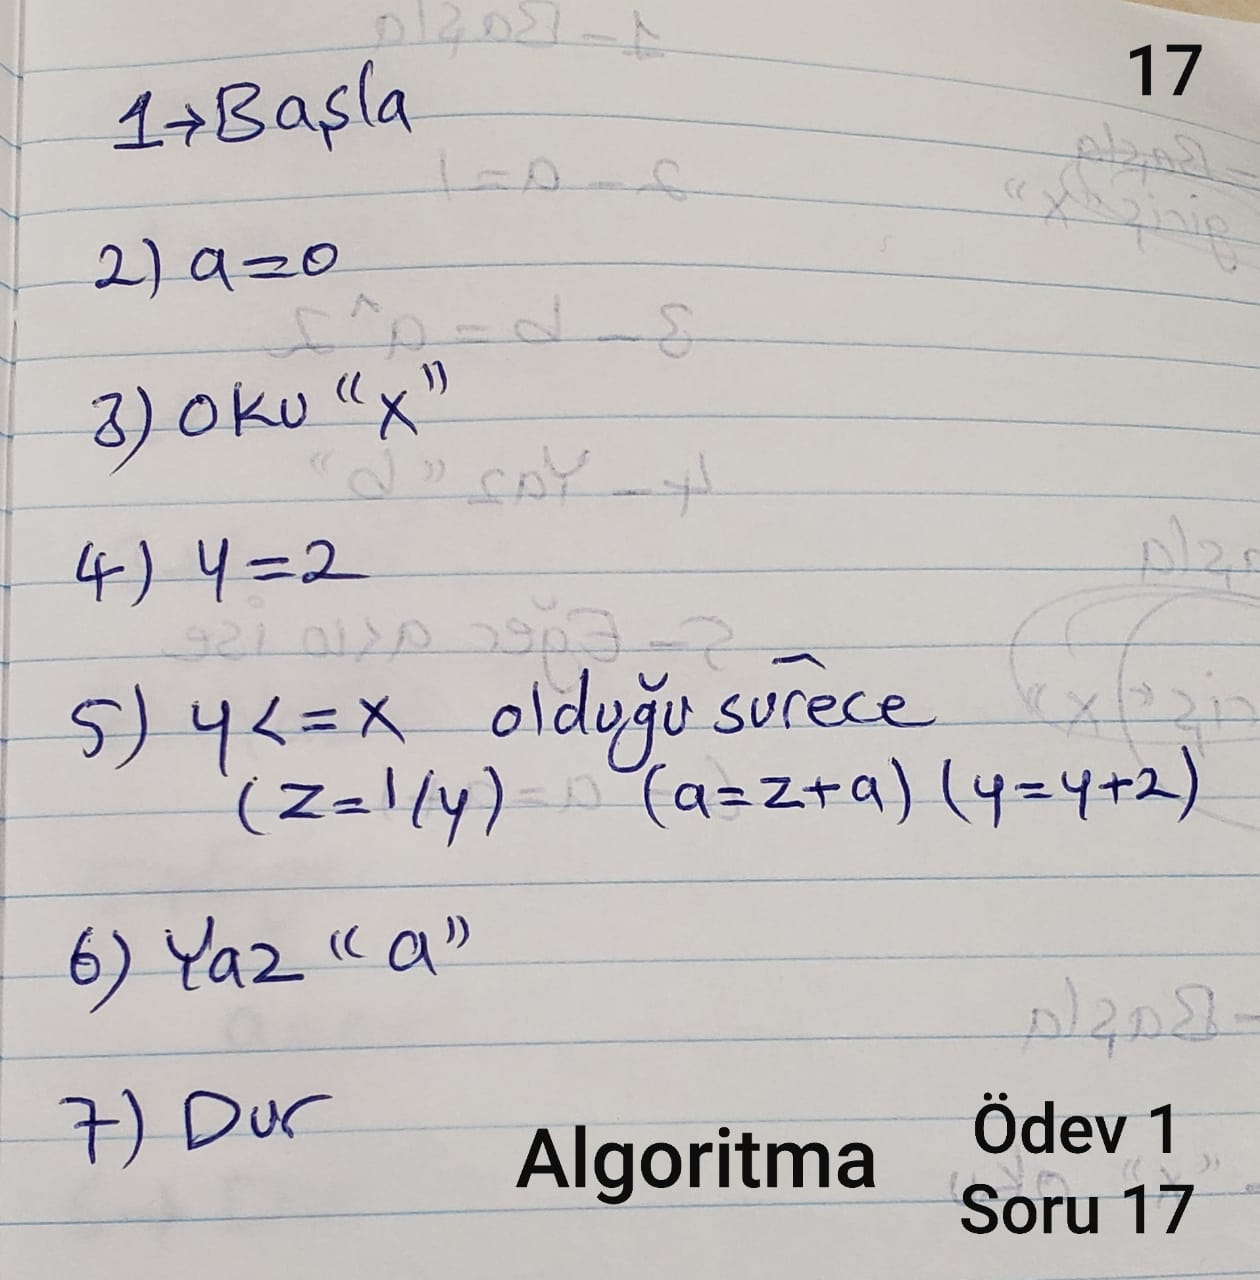 17
1→Başla
2) a=0
3) oku "x"
4) y=2
5) y<=x olduğu sürece
(z=1/y) (a=z+a) (y=y+2)
6) Yaz "a"
7) Dur
Algoritma
Ödev 1
Soru 17